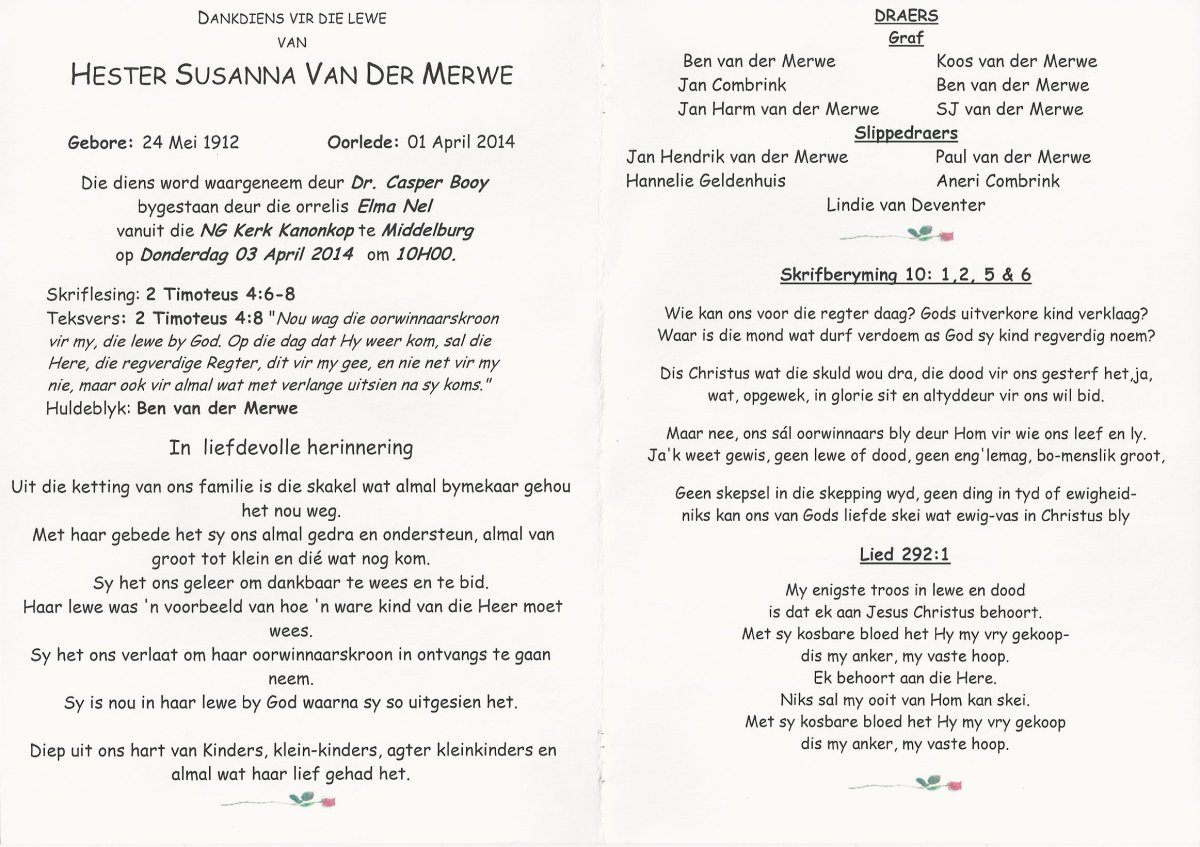 DANKDIENS VIR DIE LEWE
VAN
HESTER SUSANNA VAN DER MERWE
Gebore: 24 Mei 1912 Oorlede: 01 April 2014
Die diens word waargeneem deur Dr. Casper Booy
bygestaan deur die orrelis Elma Nel
vanuit die NG Kerk Kanonkop te Middelburg
op Donderdag 03 April 2014 om 10H00.
Skriflesing: 2 Timoteus 4:6-8
Teksvers: 2 Timoteus 4:8 "Nou wag die oorwinnaarskroon
vir my, die lewe by God. Op die dag dat Hy weer kom, sal die
Here, die regverdige Regter, dit vir my gee, en nie net vir my
nie, maar ook vir almal wat met verlange uitsien na sy koms."
Huldeblyk: Ben van der Merwe
In liefdevolle herinnering
Uit die ketting van ons familie is die skakel wat almal bymekaar gehou
het nou weg.
Met haar gebede het sy ons almal gedra en ondersteun, almal van
groot tot klein en dié wat nog kom.
Sy het ons geleer om dankbaar te wees en te bid.
Haar lewe was 'n voorbeeld van hoe 'n ware kind van die Heer moet
wees.
Sy het ons verlaat om haar oorwinnaarskroon in ontvangs te gaan
neem.
Sy is nou in haar lewe by God waarna sy so uitgesien het.
Diep uit ons hart van Kinders, klein-kinders, agter kleinkinders en
almal wat haar lief gehad het.
DRAERS
Graf
Ben van der Merwe Koos van der Merwe
Jan Combrink Ben van der Merwe
Jan Harm van der Merwe SJ van der Merwe
Slippedraers
Jan Hendrik van der Merwe Paul van der Merwe
Hannelie Geldenhuis Aneri Combrink
Lindie van Deventer
Skrifberyming 10: 1,2, 5 & 6
Wie kan ons voor die regter daag? Gods uitverkore kind verklaag?
Waar is die mond wat durf verdoem as God sy kind regverdig noem?
Dis Christus wat die skuld wou dra, die dood vir ons gesterf het,ja,
wat, opgewek, in glorie sit en altyddeur vir ons wil bid.
Maar nee, ons sál oorwinnaars bly deur Hom vir wie ons leef en ly.
Ja'k weet gewis, geen lewe of dood, geen eng'lemag, bo-menslik groot,
Geen skepsel in die skepping wyd, geen ding in tyd of ewigheid-
niks kan ons van Gods liefde skei wat ewig-vas in Christus bly
Lied 292:1
My enigste troos in lewe en dood
is dat ek aan Jesus Christus behoort.
Met sy kosbare bloed het Hy my vry gekoop-
dis my anker, my vaste hoop.
Ek behoort aan die Here.
Niks sal my ooit van Hom kan skei.
Met sy kosbare bloed het Hy my vry gekoop
dis my anker, my vaste hoop.